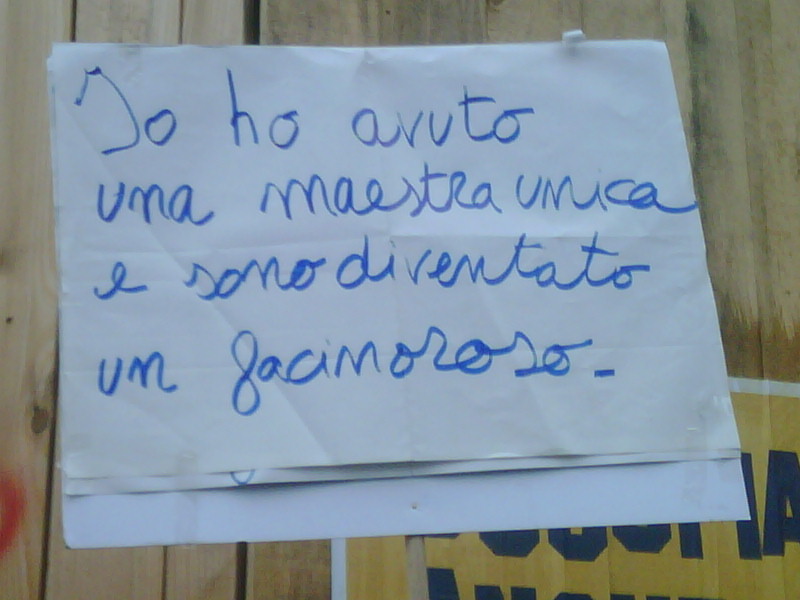 Io ho avuto
una maestra unica
e sono diventato
un facinoroso-